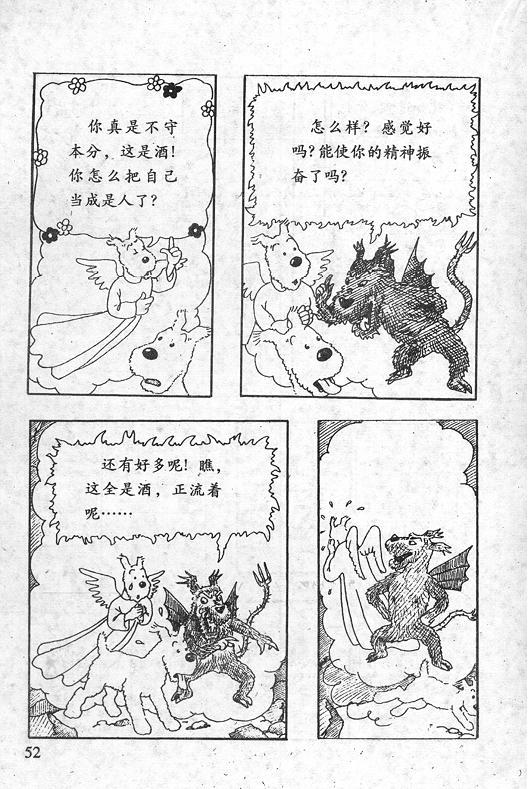 你真是不守
本分，这是酒！
你怎么把自己
当成是人了？
怎么样？感觉好
吗？能使你的精神振
奋了吗？
还有好多呢！瞧，
这全是酒，正流着
呢……
52